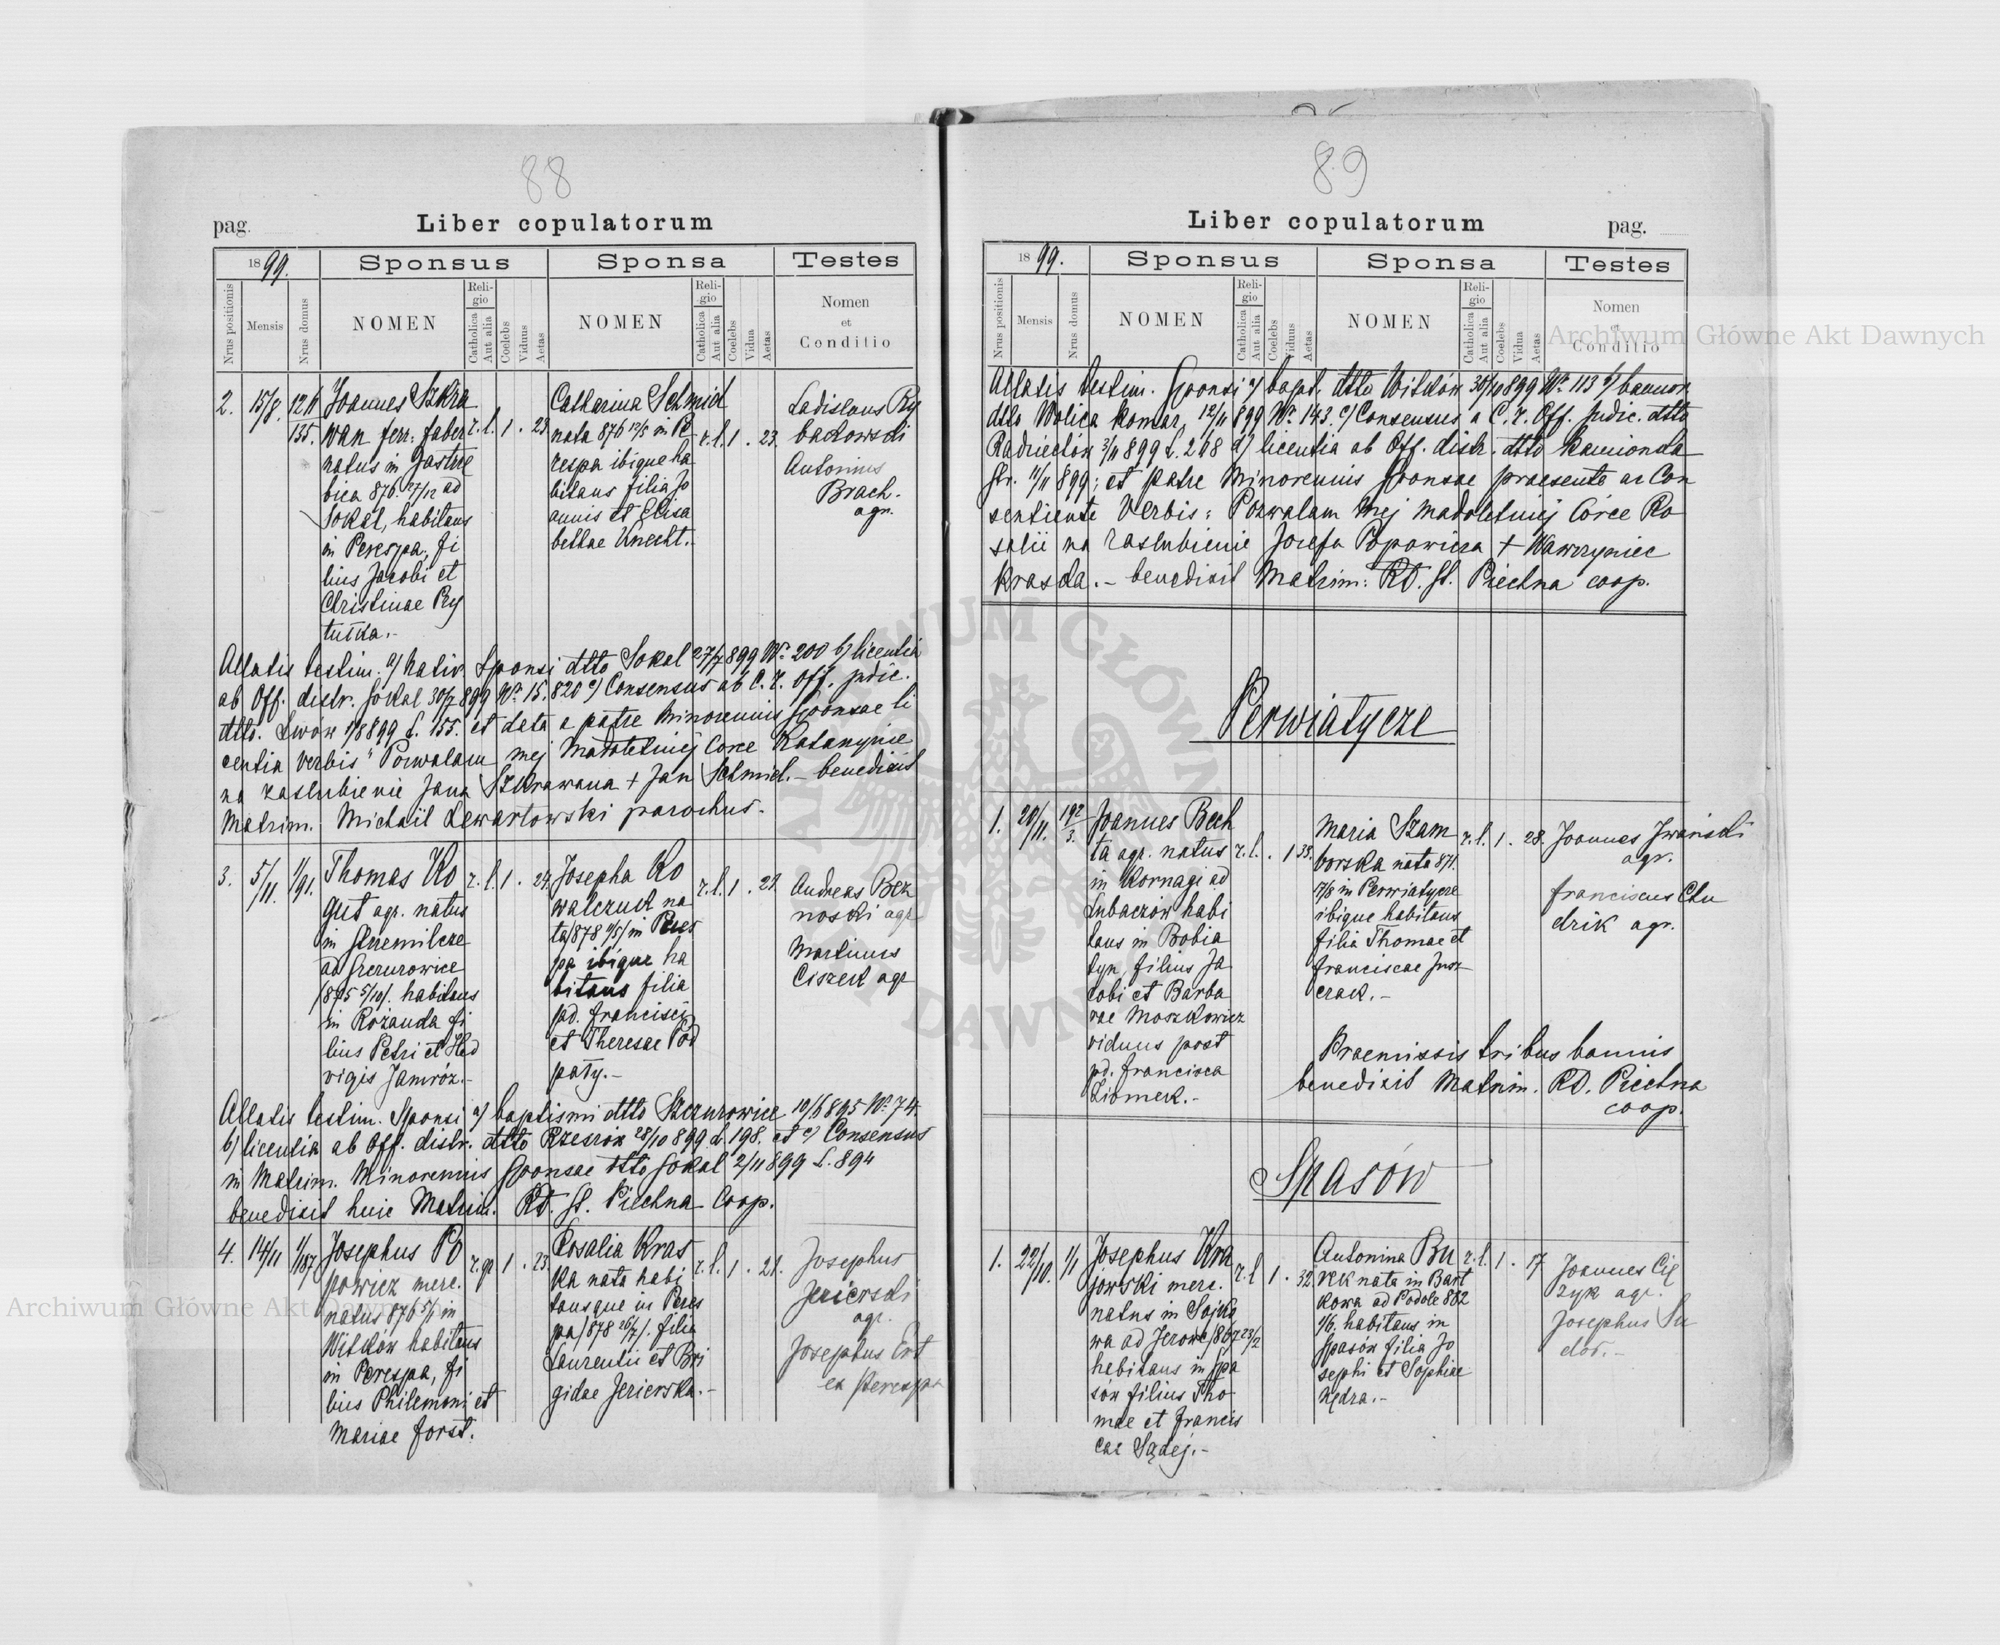 88
pag.
Liber copulatorum
1899.
Sponsus
Sponsa
Testes
Nrus positionis
Mensis
Nrus domus
NOMEN
Religio
Catholica
Aut alia
Coelebs
Viduus
Aetas
NOMEN
Religio
Catholica
Aut alia
Coelebs
Vidua
Aetas
Nomen
et
Conditio
2. 15/8. 12/1 135.
Joannes Szkra
wan ferr: faber
natus in Jastrzę
bica 876. 27/12 ad
Sokal, habitans
in Perespa, fi
lius Jacobi et
Christinae Ry
tuska.-
r.l. 1 . 23
Catharina Schmid
nata 876 in Pe
respa ibique ha
bitans filia Jo
annis et Elisa
bethae Knecht.-
r.l. 1 . 23.
Ladislaus Ry
backowski
Antonius
Brach.
agr.
Allatis testim. a) Nativ. Sponsi dtto Sokal 27/7 899 Nr 200 b) licentia
ab Off. distr. Sokal 30/7 899 Nr 15.820 c) Consensus ab C. r. Off. judic.
dtto. Lwów 1/8 899 L. 155. et data a patre Minorennis Sponsae li
centia verbis "Pozwalam mej Małoletniej Córce Katarzynie
na zaślubienie Jana Szkrawana + Jan Schmid.- benedixit
Matrim. Michail Lewartowski parochus.
3. 5/11. 1/91.
Thomas Ko
gut agr. natus
in Stremilcze
ad Szczurowice
/875 5/10/. habitans
in Rożanda fi
lius Petri et Hed
vigis Jamróz.-
r.l. 1 . 24.
Josepha Ko
walczuk na
ta/878 /in Peres
pa ibique ha
bitans filia
pd. Francisci
et Theresae Pod
paty.-
r.l. 1 . 21.
Andreas Bez
noski agr
Martinus
Ciszek agr
Allatis testim. Sponsi a) baptismi dtto Szczurowice 10/6 895 Nr 74.
b) licentia ab Off. distr. dtto Rzeszów 28/10 899 L. 198. et c) Consensus
in Matrim. Minorennis Sponsae dtto Sokal 2/11 899 L. 894
benedixit huic Matrim. RD. St. Piechna Coop.
4. 14/11 1/187
Josephus Po
powicz merc.
natus 876 5/1 in
Witków habitans
in Perespa, fi
lius Philemoni et
Mariae Forst.
r.gr 1 . 23.
Rosalia Kras
ka nata habi
tansque in Peres
pa/878 26/7/. filia
Laurentii et Bri
gidae Jezierska.-
r.l. 1 . 21.
Josephus
Jezierski
agr.
Josephus Ert
ex Perespa
89
Liber copulatorum
pag.
1899.
Sponsus
Sponsa
Testes
Nrus positionis
Mensis
Nrus domus
NOMEN
Religio
Catholica
Aut alia
Coelebs
Viduus
Aetas
NOMEN
Religio
Catholica
Aut alia
Coelebs
Vidua
Aetas
Nomen
et
Conditio
Allatis testim. Sponsi a) bapt. dtto Witków 30/10 899 Nr 113 b) bannor.
dtto Wolica Komar. 12/11 899 Nr 143. c) Consensus a C. r. Off. Judic. dtto
Radziechów 3/11 899 L. 268 d) licentia ab Off. distr. dtto Kamionka
Str. 11/11 899; et patre Minorennis Sponsae praesente ac Con
sentiente verbis: Pozwalam Mej Małoletniej Córce Ro
salii na zaślubienie Józefa Popowicza + Wawrzyniec
Kraska.- benedixit Matrim: RD. St. Piechna coop.
Perwiatycze
1. 20/11. 192/3.
Joannes Bech
ta agr. natus
in Kornagi ad
Lubaczów habi
tans in Bobia
tyn, filius Ja
cobi et Barba
rae Moszkowicz
viduus post
pd. Francisca
Liomek.-
r.l. . 1 33.
Maria Szam
borska nata 871.
17/8 in Perwiatycze
ibique habitans
filia Thomae et
Franciscae Jusz
czak.-
r.l. 1 . 28.
Joannes Iwański
agr.
Franciscus Chu
drik agr.
Praemissis tribus bannis
benedixit Matrim. RD. Piechna
coop.
Spasów
1. 22/10. 1/1
Josephus Kra
jowski merc.
natus in Sojko
wa ad Jerowe/867 23/2
habitans in Spa
sów filius Tho
mae et Francis
cae Sądej.-
r.l 1 . 32.
Antonina Bu
rkk nata in Bart
kowa ad Podole 882
1/6. habitans in
Spasów filia Jo
sephi et Sophiae
Kędra.-
r.l. 1 . 17.
Joannes Cię
zyk agr.
Josephus Su
dor.-
Archiwum Główne Akt Dawnych
Archiwum Główne Akt Dawnych
ARCHIWUM GŁÓWNE AKT DAWNYCH